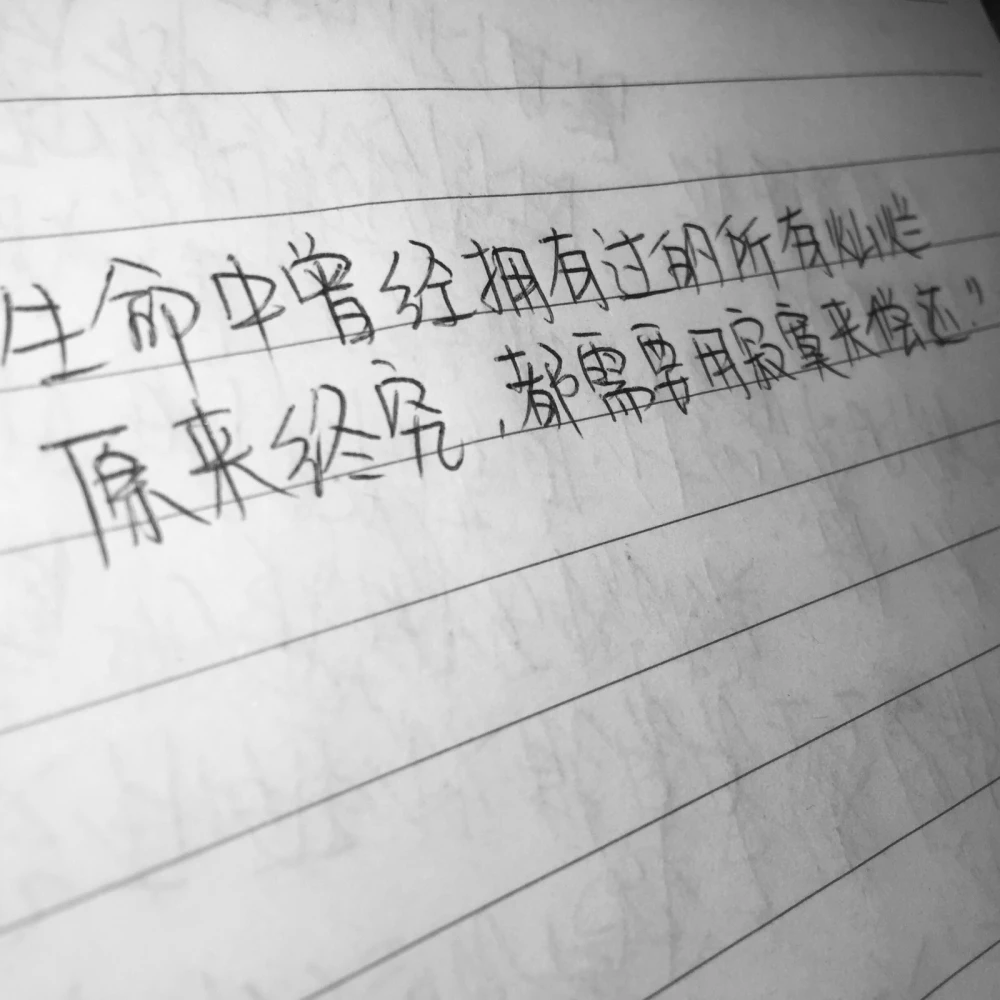 生命中曾经拥有过的所有灿烂
原来终究,都需要用寂寞来偿还”